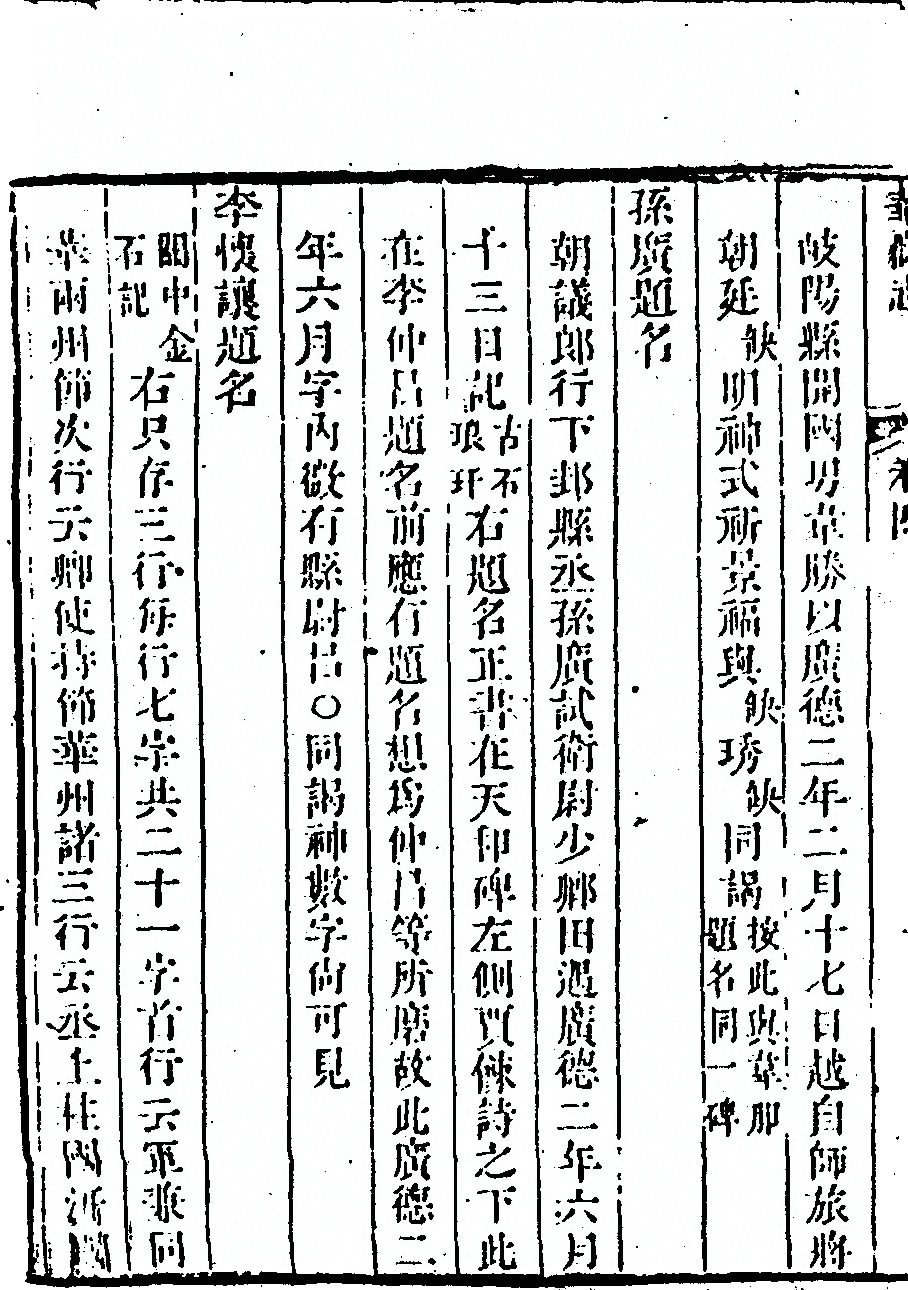 華嶽志 卷四
岐陽縣開國男韋勝以廣德二年二月十七日越自師旅將
朝廷缺明神式祈景福與缺琇缺同謁按此與韋即題名同一碑
孫廣題名
朝議郎行下邽縣丞孫廣試衛尉少卿田遇廣德二年六月
十三日記古石琅玕右題名正書在天和碑左側賈餗詩之下此
在李仲昌題名前應有題名想為仲昌等所磨故此廣德二
年六月字內微有縣尉呂○同謁神數字尚可見
李懷讓題名
關中金石記右只存三行每行七字共二十一字首行云軍兼同
華兩州節次行云卿使持節華州諸三行云丞上柱國